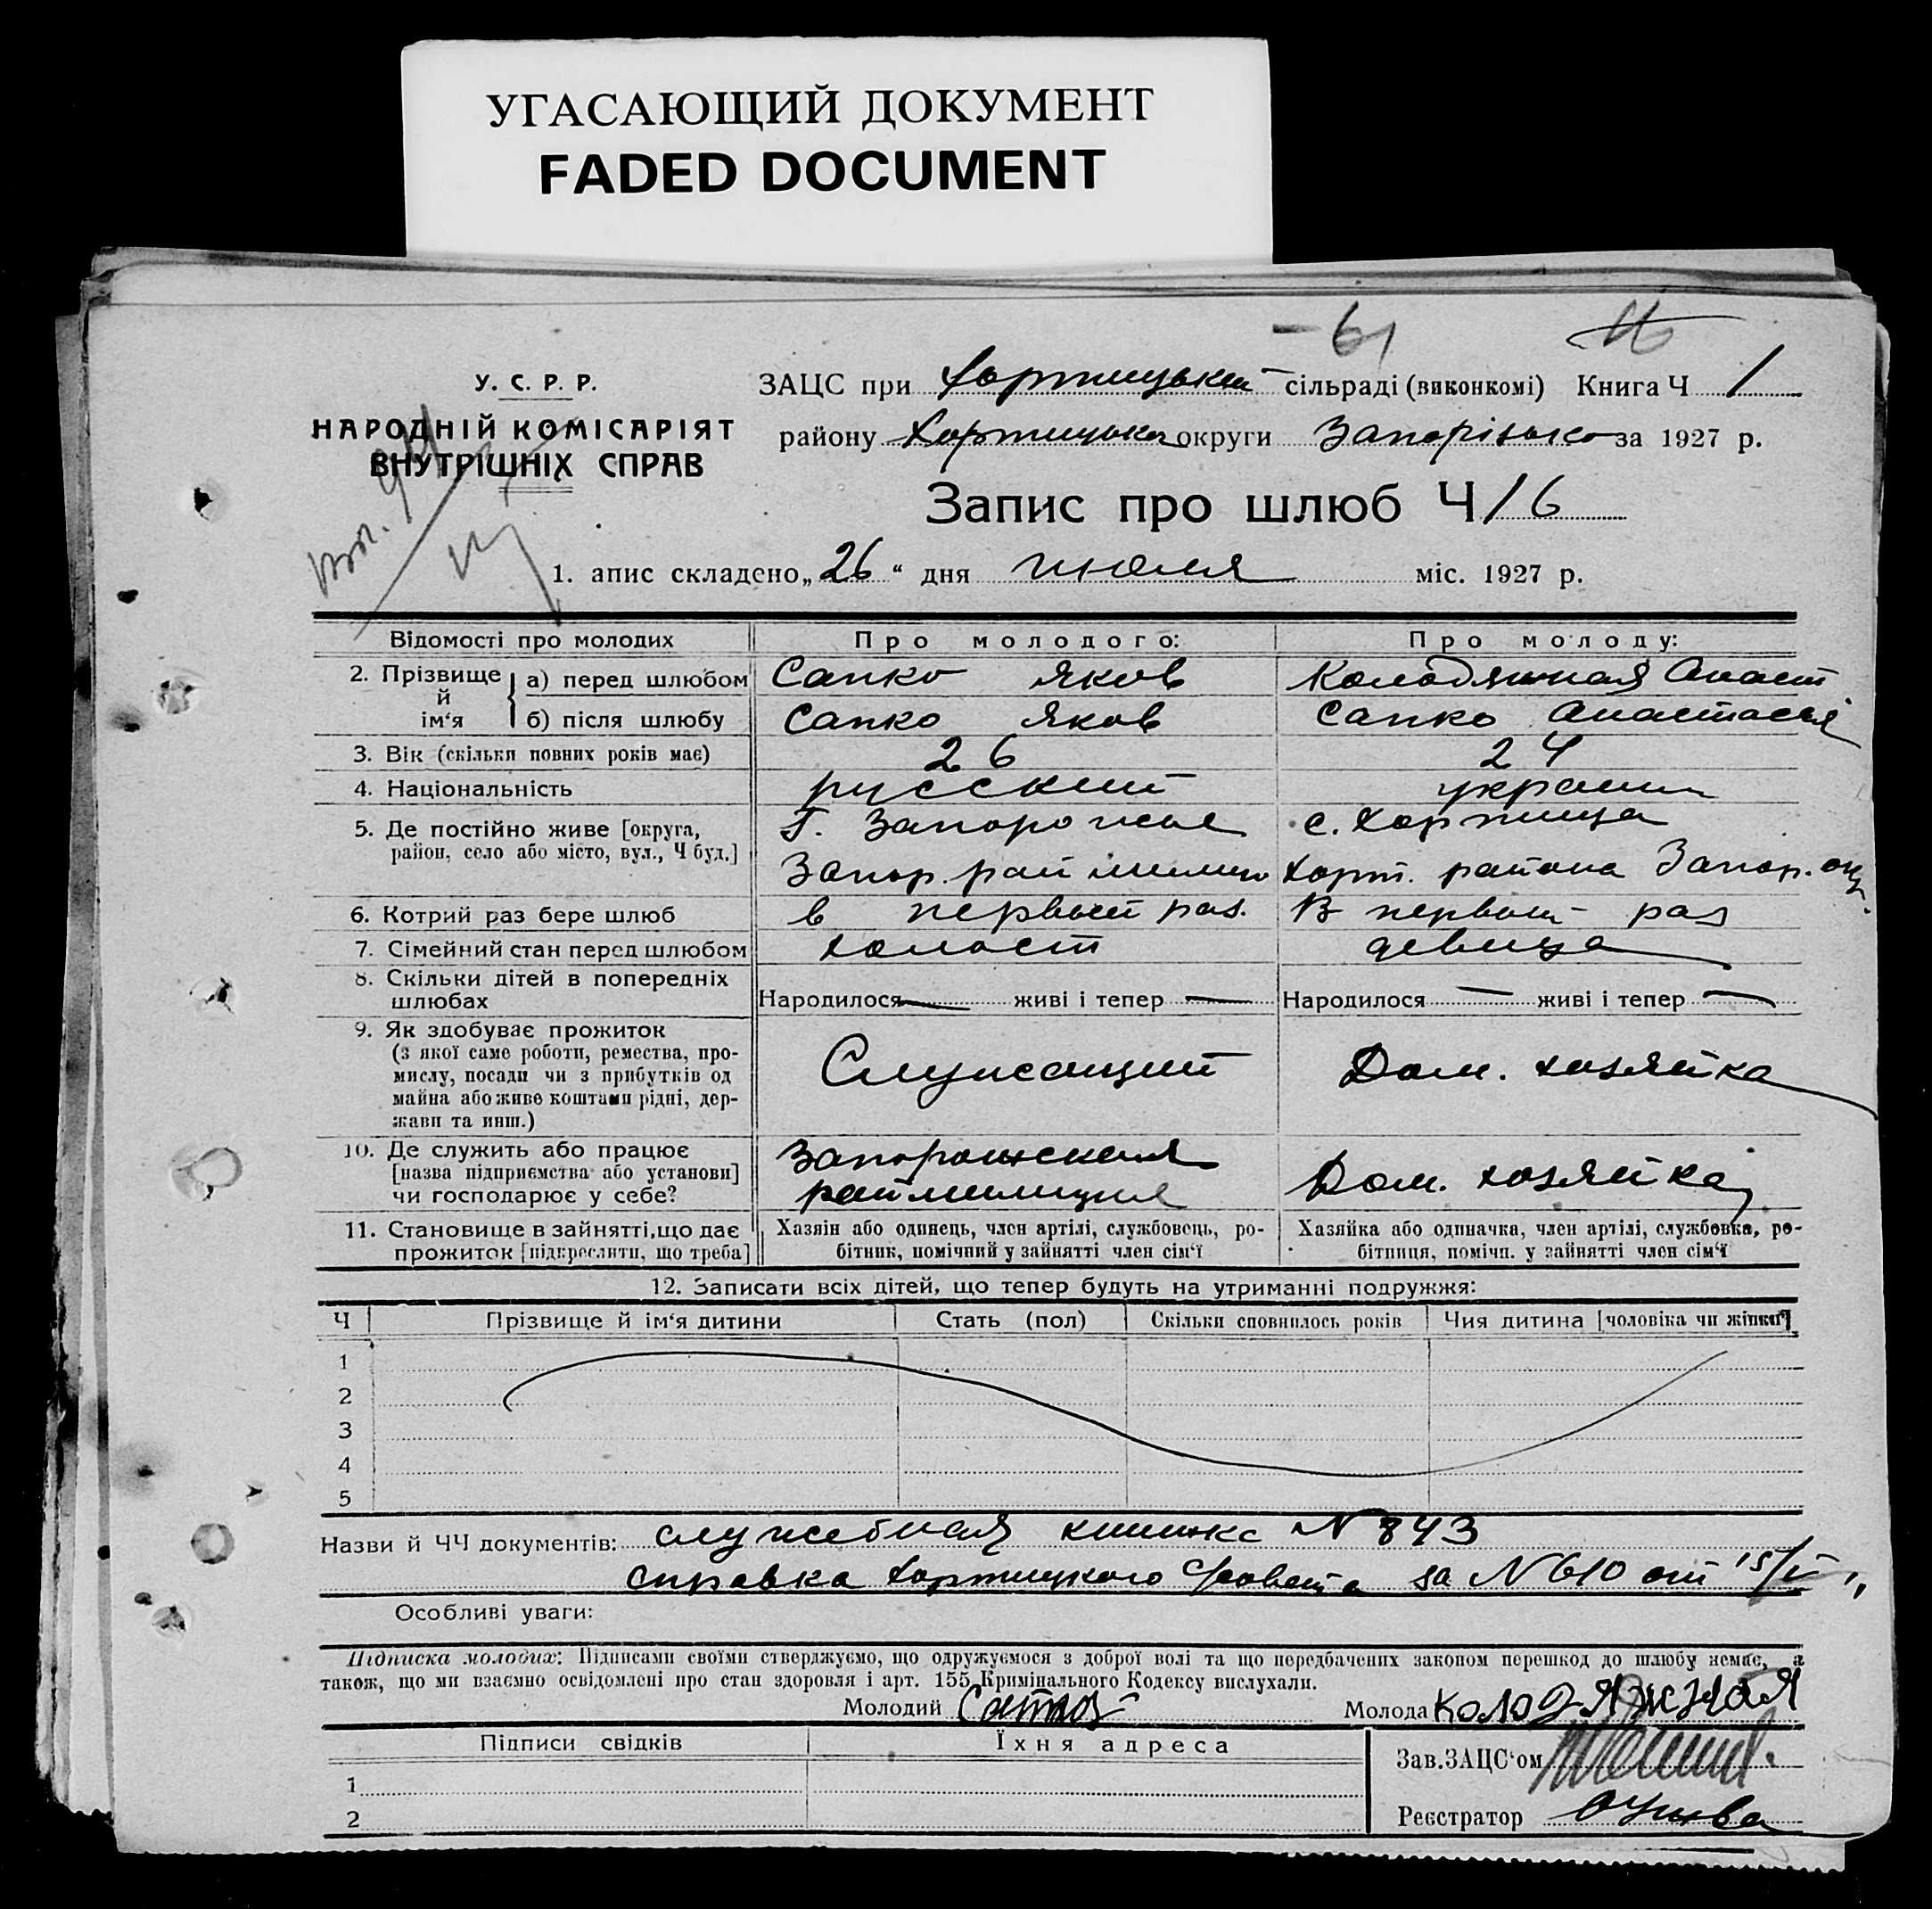 УГАСАЮЩИЙ ДОКУМЕНТ
FADED DOCUMENT
-61 16
У. С. Р. Р.
НАРОДНІЙ КОМІСАРІЯТ
ВНУТРІШНІХ СПРАВ
ЗАЦС при Хортицькій сільраді (виконкомі) Книга Ч 1
району Хортицького округи Запорізької за 1927 р.
Запис про шлюб Ч 16
1. апис складено „26“ дня июля міс. 1927 р.
Відомості про молодих Про молодого: Про молоду:
2. Прізвище й ім‘я а) перед шлюбом Сапко Яков Колодяжная Анаст.
б) після шлюбу Сапко Яков Сапко Анастасія
3. Вік (скільки повних років має) 26 24
4. Національність русский украин
5. Де постійно живе [округа, район, село або місто, вул., Ч буд.] Г. Запорожье с. Хортица
Запор. рай милиц Хорт. района Запор. окр.
6. Котрий раз бере шлюб в первый раз. В первый раз
7. Сімейний стан перед шлюбом холост девица
8. Скільки дітей в попередніх шлюбах Народилося — живі і тепер — Народилося — живі і тепер —
9. Як здобуває прожиток
(з якої саме роботи, ремества, про-
мислу, посади чи з прибутків од
майна або живе коштами рідні, дер-
жави та инш.)
Служащий Дом. хозяйка
10. Де служить або працює
[назва підприємства або установи]
чи господарює у себе?
Запорожская
раймилиция
Дом. хозяйка
11. Становище в зайнятті, що дає
прожиток [підкреслити, що треба]
Хазяїн або одинець, член артілі, службовець, ро-
бітник, помічний у зайнятті член сім‘ї
Хазяйка або одиначка, член артілі, службовка, ро-
бітниця, помічн. у зайнятті член сім‘ї
12. Записати всіх дітей, що тепер будуть на утриманні подружжя:
Ч Прізвище й ім‘я дитини Стать (пол) Скільки сповнилось років Чия дитина [чоловіка чи жінки]
1
2
3
4
5
Назви й ЧЧ документів: служебная книжка N 843
справка Хортицкого С/совета за N 610 от 15/V
Особливі уваги:
Підписка молодих: Підписами своїми стверджуємо, що одружуємося з доброї волі та що передбачених законом перешкод до шлюбу немає, а
також, що ми взаємно освідомлені про стан здоровля і арт. 155 Кримінального Кодексу вислухали.
Молодий Молода Колодяжная
Підписи свідків Їхня адреса
Зав.ЗАЦС‘ом
1
2
Реєстратор